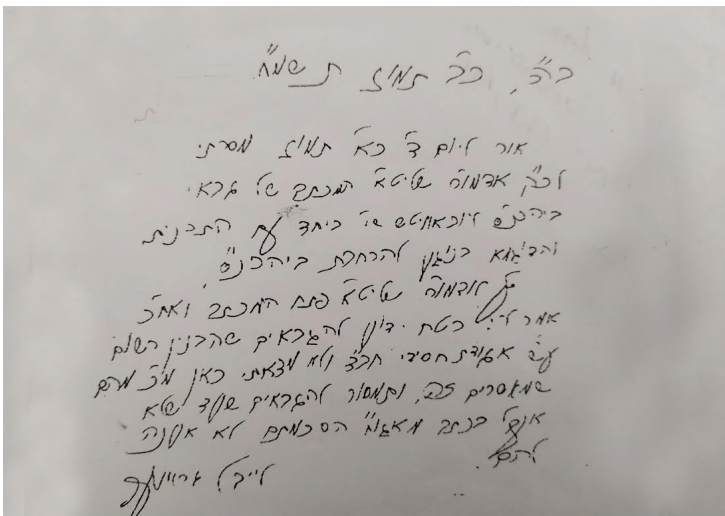 ב"ה, כ"ב תמוז תשמ"ח
אור ליום ד' כ"א תמוז מסרתי
לכ"ק אדמו"ר שליט"א המכתב של גבאי
ביהכנ"ס ליובאוויטש שי' ביחד עם התכנית
להרחבת ביהכנ"ס,
אדמו"ר שליט"א פתח המכתב ואח"כ
אמר לי: בטח ידוע להגבאים שהבנין רשום
ע"ש אגודת חסידי חב"ד ולא מצאתי כאן מ"כ מהם
שמאשרים זה, ותמסור להגבאים שעד שלא
אקבל בכתב מאגו"ח הסכמתם לא אענה
להם.
לייבל גראנער